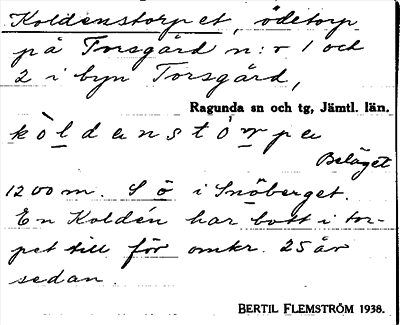 Koldenstorpet, ödetorp
på Torsgård n:r 1 och
2 i byn Torsgård,
Ragunda sn och tg, Jämtl. län.
kòldenstórpe
Beläget
1200 m. S ö i Snöberget.
En Koldén har bott i tor-
pet till för omkr. 25 år
sedan.
BERTIL FLEMSTRÖM 1938.